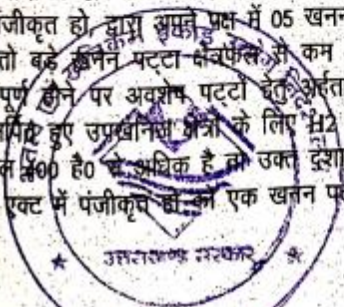 पंजीकृत हो, द्वारा अपने पक्ष में 05 खनन
तो बड़े खनन पट्टा क्षेत्रफल से कम
पूर्ण होने पर अवशेष पट्टों हेतु अर्हता
हुए उपखनिज क्षेत्रों के लिए
400 है0 से अधिक है तो उक्त दशा
एक्ट में पंजीकृत हो को एक खनन
उत्तराखण्ड सरकार